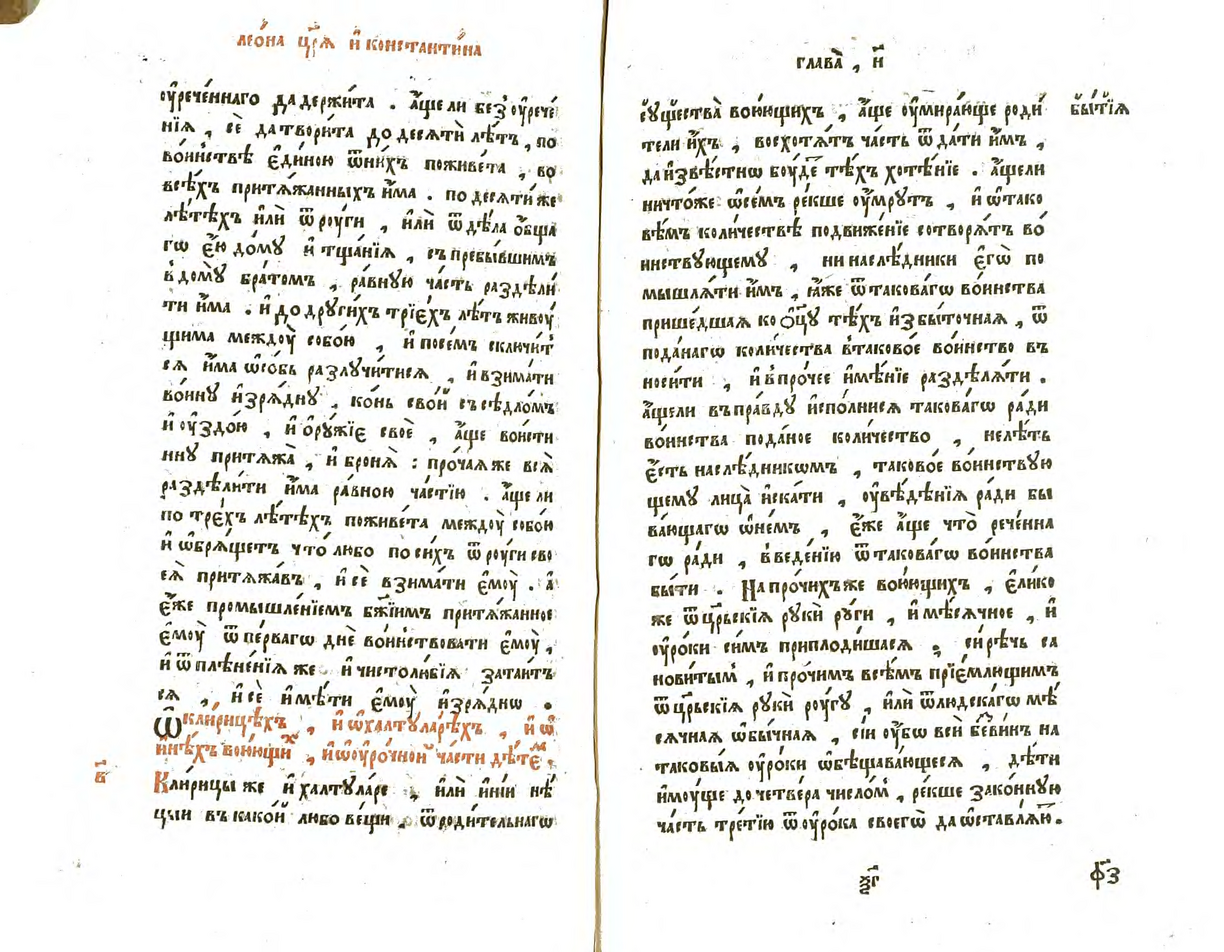 леѡ́на цр҃ѧ̀ и҆ константи́на
ѹ҆рече́ннаго да держи́та . а҆́ще ли без̾ ѹ҆рече́
нїѧ , се́ да твори́та до десѧтѝ лѣ́тъ , по
во́инствѣ є҆ди́ною ѿ ни́хъ поживе́та , во
всѣ́хъ притѧ́жанныхъ и҆́ма . по десѧти́ же
лѣ́тѣхъ и҆лѝ ѿ рꙋ́ги , и҆лѝ ѿ дѣ́ла ѻ҆́бща
гѡ є҆ю̀ до́мꙋ и҆ тща́нїѧ , съ пребы́вшимъ
в до́мꙋ бра́томъ , ра́внꙋю ча́сть раздѣлѝ
ти и҆́ма . и҆ до дрꙋги́хъ трїе́хъ лѣ́тъ живѹ́
щима междѹ̀ собо́ю , и҆ посе́мъ сключи́т
сѧ и҆́ма ѡ҆со́бь разлꙋчи́тисѧ , и҆ взима́ти
во́инꙋ и҆зрѧ́днꙋ , ко́нь сво́й съ сѣдло́мъ
и҆ ѹ҆здо́ю , и҆ ѻ҆рꙋ́жїе своѐ , а҆́ще вои́сти
ннꙋ притѧжа̀ , и҆ бронѧ̀ : про́чаѧ же всѧ̀
раздѣли́ти и҆́ма ра́вною ча́стїю . а҆́ще ли
по тре́хъ лѣ́тѣхъ поживе́та междѹ̀ собо́ю
и҆ ѡ҆брѧ́щетъ что̀ любо по си́хъ ѿ рꙋ́ги сво
еѧ̀ притѧжа́въ , и҆ сѐ взима́ти є҆мѹ̀ . а҆
є҆́же промышле́нїемъ бж҃їимъ притѧ́жанное
є҆мѹ̀ ѿ пе́рвагѡ днѐ во́инствовати є҆мѹ̀ ,
и҆ ѿ плѣне́нїѧ же и҆ чистолю́бїѧ затаи́тъ
сѧ , и҆ сѐ и҆мѣ́ти є҆мѹ̀ и҆зрѧ́днѡ .
Ѡ҆ кли́рицѣхъ , и҆ ѡ҆ халтꙋларѣ́хъ , и҆ ѡ҆
и҆нѣ́хъ вою́ющиⷯ , и҆ ѡ҆ ѹ҆ро́чной ча́сти дѣ́теⷨ .
в҃ Кли́рицы же и҆ халтꙋла́ре , и҆лѝ и҆ні́и нѣ́
цыи въ како́й любо ве́щи , ѿ роди́тельнагѡ
глава̀ , и҃
сꙋщества̀ вою́ющихъ , а҆́ще ѹ҆мира́юще роди́ бы́тїѧ
тели и҆́хъ , восхотѧ́тъ ча́сть ѿда́ти и҆́мъ ,
да и҆звѣ́стнѡ бѹ́деⷮ тѣ́хъ хотѣ́нїе . а҆́ще ли
ничто́же ѡ҆ се́мъ ре́кше ѹ҆мрꙋ́тъ , и҆ ѡ҆ тако
вѣ́мъ коли́чествѣ подвиже́нїе сотворѧ́тъ во́
инствꙋющемꙋ , ни наслѣ́дники є҆гѡ̀ по
мышлѧ́ти и҆́мъ , ꙗ҆́же ѿ такова́гѡ во́инства
прише́дшаѧ ко ѻ҆ц҃ꙋ̀ тѣ́хъ и҆збы́точнаѧ , ѿ
пода́нагѡ коли́чества в̾ таково́е во́инство въ
носи́ти , и҆ в̾ про́чее и҆мѣ́нїе раздѣлѧ́ти .
а҆́ще ли въ пра́вдꙋ и҆спо́лнисѧ такова́гѡ ра́ди
во́инства пода́ное коли́чество , не лѣ́ть
є҆́сть наслѣ́дникѡмъ , таково́е во́инствꙋю
щемꙋ лица̀ и҆ска́ти , ѹ҆вѣ́дѣнїѧ ра́ди бы
ва́ющагѡ ѡ҆ не́мъ , є҆́же а҆́ще что̀ рече́нна
гѡ ра́ди , введе́нїю ѿ такова́гѡ во́инства
бы́ти . На про́чихъ же вою́ющихъ , є҆ли́ко
же ѿ цр҃ьскїѧ рꙋкѝ рꙋ́ги , и҆ мѣ́сѧчное , и҆
ѹ҆ро́ки си́мъ приплоди́шасѧ , си́рѣчь са
нови́тыⷨ , и҆ про́чимъ всѣ́мъ прїе́млющимъ
ѿ цр҃ьскїѧ рꙋкѝ рѹ́гꙋ , и҆лѝ ѿ людска́гѡ мѣ́
сѧчнаѧ ѡ҆бы́чнаѧ , сі́и ѹ҆́бѡ всѝ без̾ ви́нъ на
таковы́ѧ ѹ҆ро́ки ѡ҆бѣщава́ющесѧ , дѣ́ти
и҆мѹ́ще до че́твера число́мъ , ре́кше зако́ннꙋю
ча́сть тре́тїю ѿ ѹ҆ро́ка своегѡ̀ да ѡ҆ставлѧ́юⷮ .
ѯ҃г
ф҃з